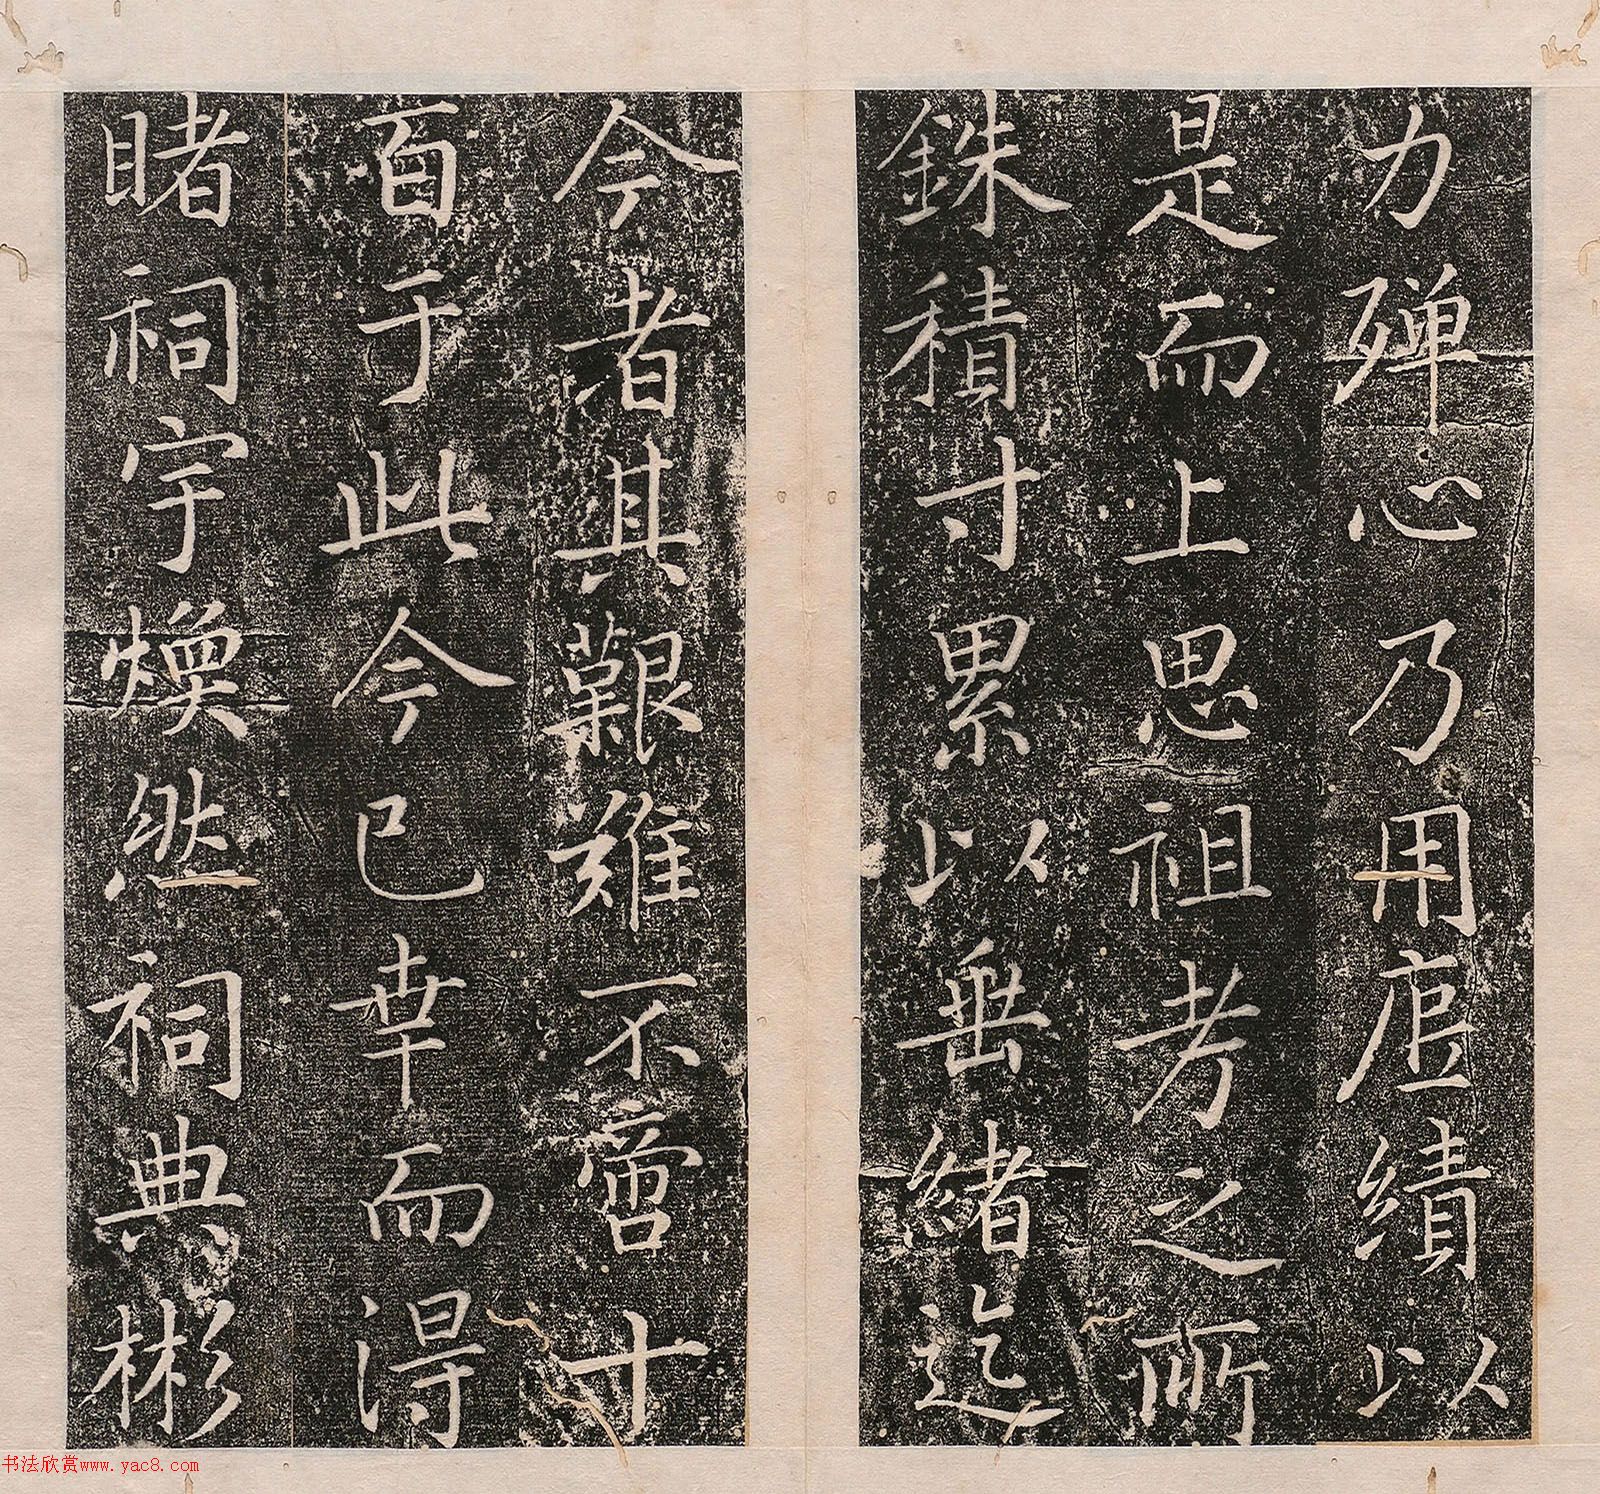 力殫心乃用底績以
是而上思祖考之所
銖積寸累以垂緒迄
今者其艱難不啻十
百于此今已幸而得
睹祠宇煥然祠典彬
书法欣赏www.yac8.com